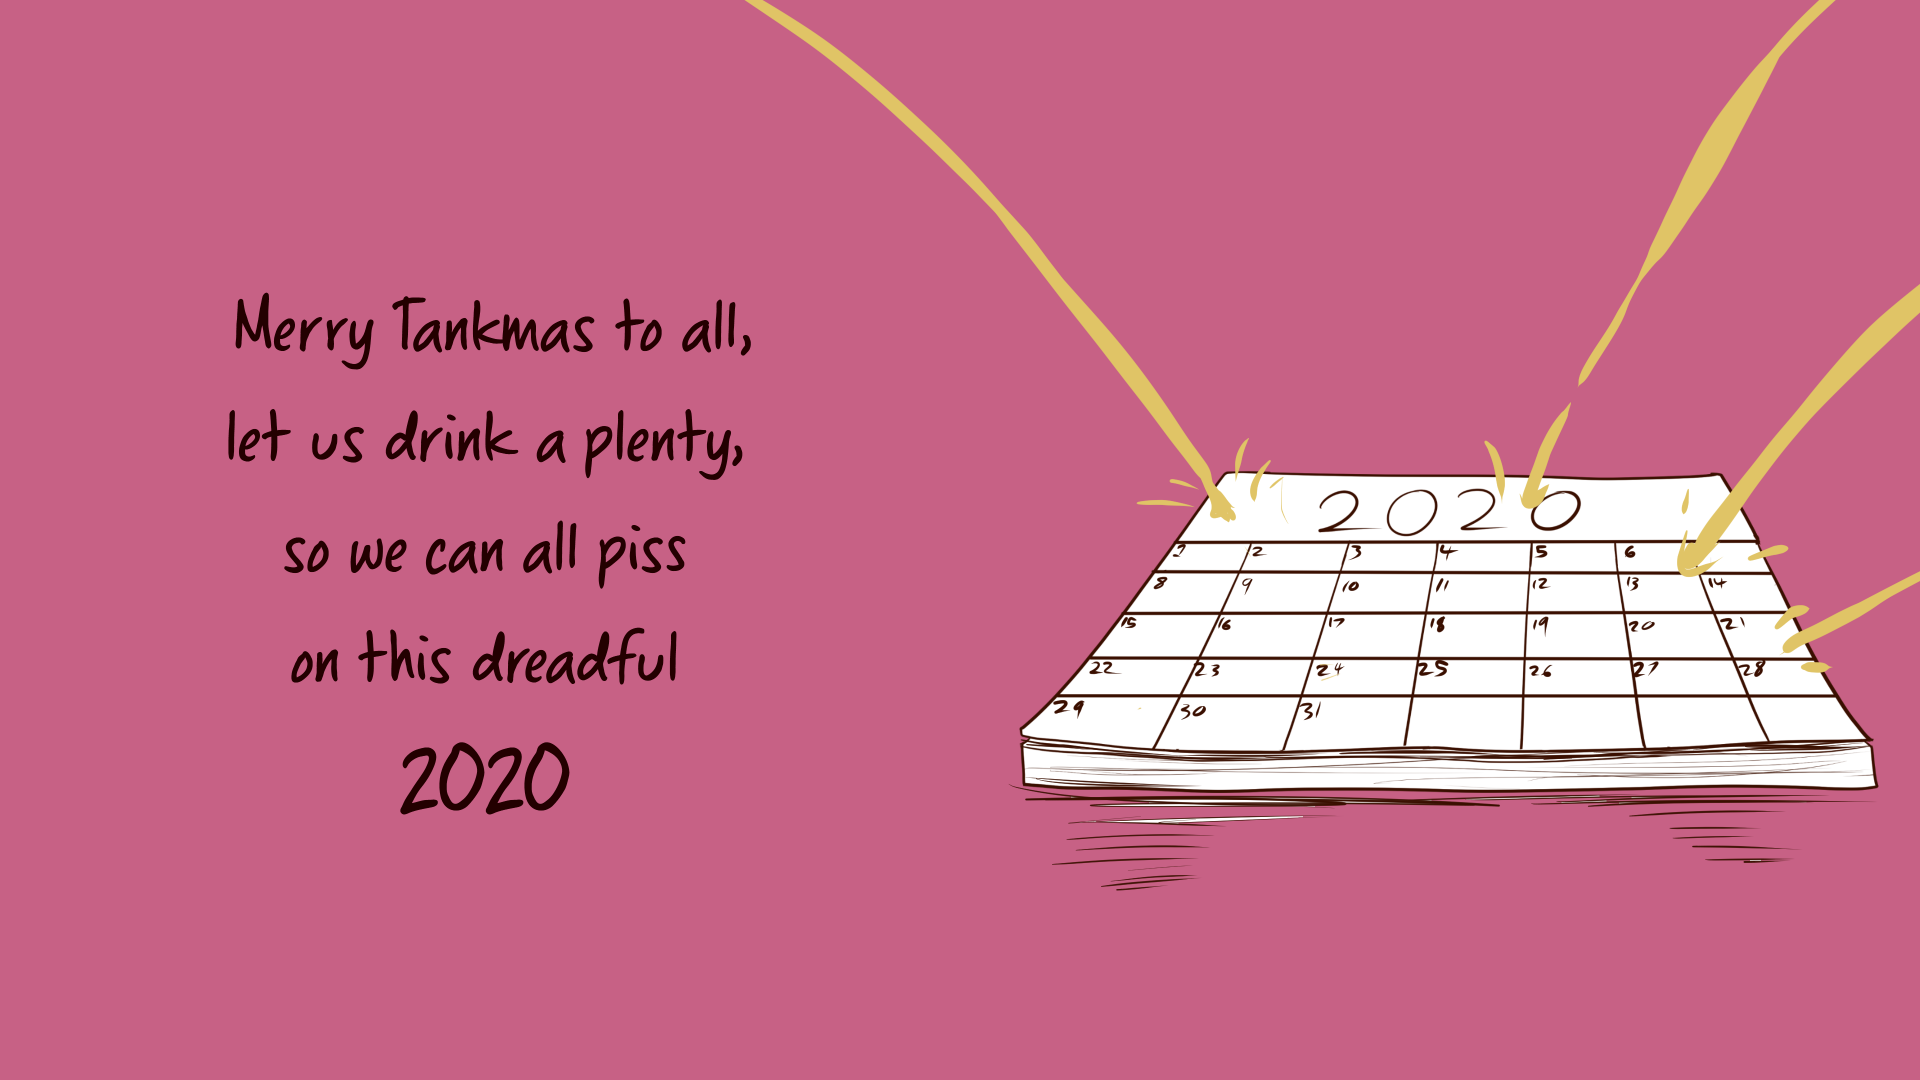 Merry Tankmas to all,
let us drink a plenty,
so we can all piss
on this dreadful
2020
2020
1 2 3 4 5 6
8 9 10 11 12 13 14
15 16 17 18 19 20 21
22 23 24 25 26 27 28
29 30 31